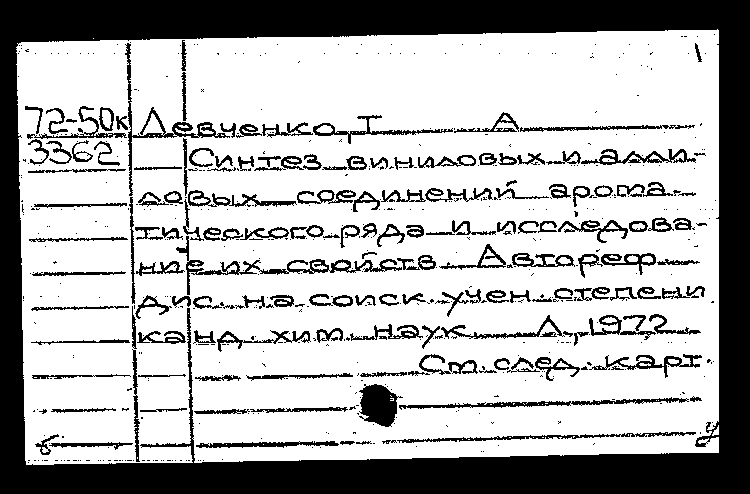 1
72-50к Левченко, Т А
3362 Синтез виниловых и алли-
ловых соединений арома-
тического ряда и исследова-
ние их свойств. Автореф.
дис. на соиск. учен. степени
канд. хим. наук. Л., 1972
См. след. карт.
б у